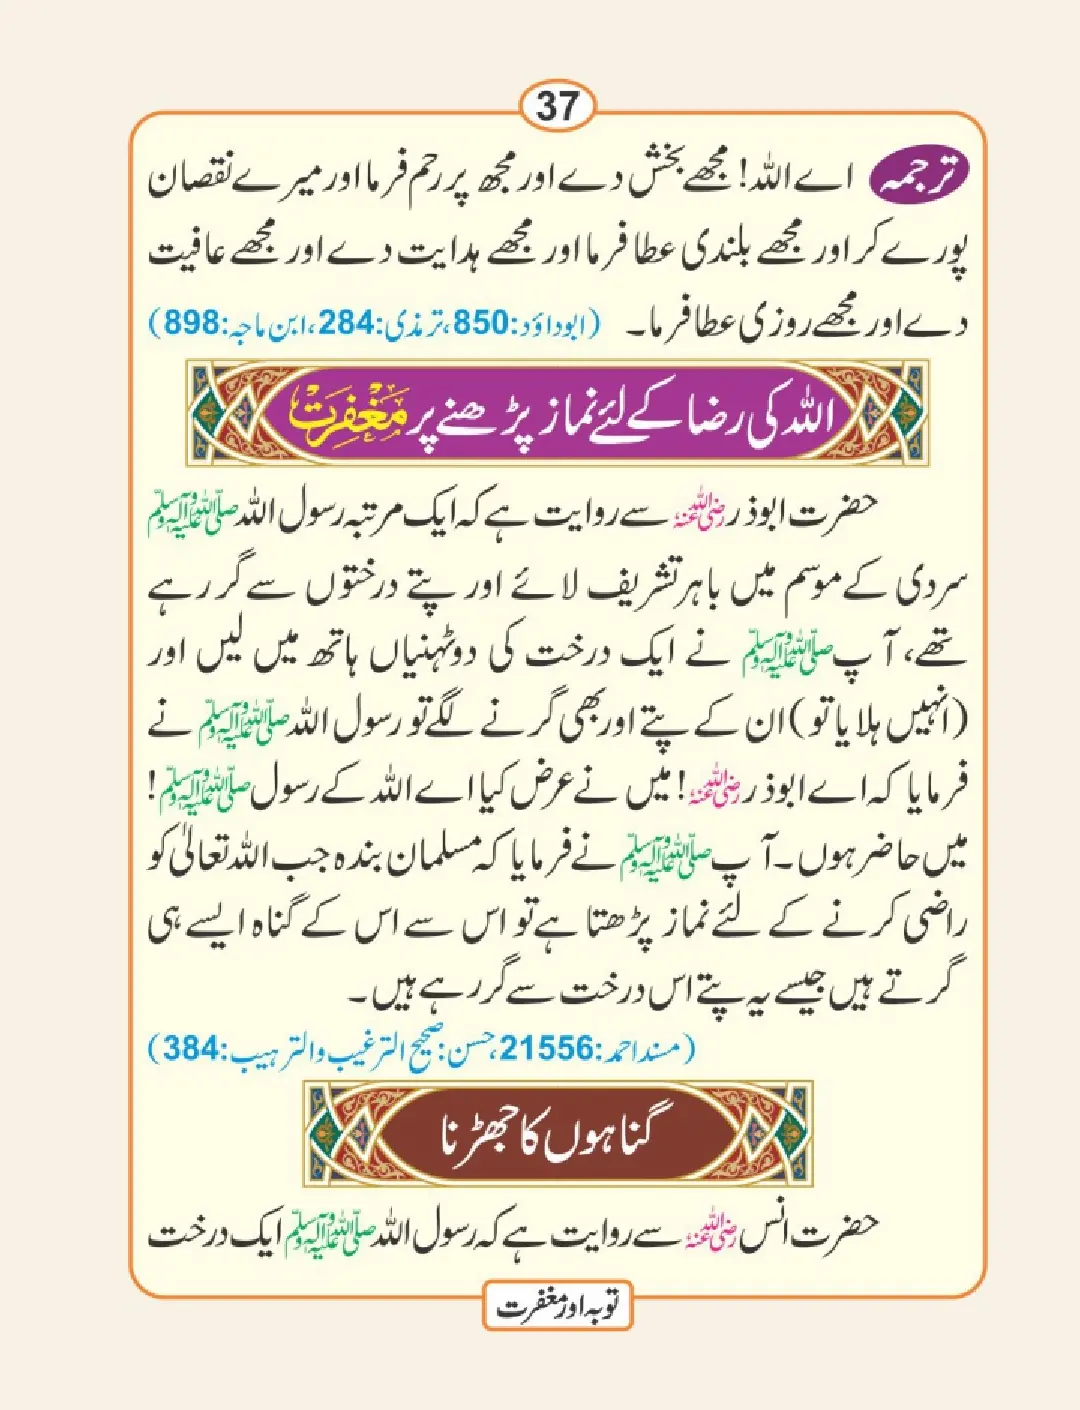 37
ترجمہ اے اللہ! مجھے بخش دے اور مجھ پر رحم فرما اور میرے نقصان
پورے کر اور مجھے بلندی عطا فرما اور مجھے ہدایت دے اور مجھے عافیت
دے اور مجھے روزی عطا فرما۔ (ابوداؤد:850،ترمذی:284،ابن ماجہ:898)
اللہ کی رضا کے لئے نماز پڑھنے پر مَغْفِرَتْ
حضرت ابوذر رضی اللہ عنہ سے روایت ہے کہ ایک مرتبہ رسول اللہ صلی اللہ علیہ وآلہ وسلم
سردی کے موسم میں باہر تشریف لائے اور پتے درختوں سے گر رہے
تھے، آپ صلی اللہ علیہ وآلہ وسلم نے ایک درخت کی دو ٹہنیاں ہاتھ میں لیں اور
(انہیں ہلایا تو) ان کے پتے اور بھی گرنے لگے تو رسول اللہ صلی اللہ علیہ وآلہ وسلم نے
فرمایا کہ اے ابوذر رضی اللہ عنہ! میں نے عرض کیا اے اللہ کے رسول صلی اللہ علیہ وآلہ وسلم!
میں حاضر ہوں۔ آپ صلی اللہ علیہ وآلہ وسلم نے فرمایا کہ مسلمان بندہ جب اللہ تعالیٰ کو
راضی کرنے کے لئے نماز پڑھتا ہے تو اس سے اس کے گناہ ایسے ہی
گرتے ہیں جیسے یہ پتے اس درخت سے گر رہے ہیں۔
(مسند احمد:21556،حسن:صحیح الترغیب والترہیب:384)
گناہوں کا جھڑنا
حضرت انس رضی اللہ عنہ سے روایت ہے کہ رسول اللہ صلی اللہ علیہ وآلہ وسلم ایک درخت
توبہ اور مغفرت